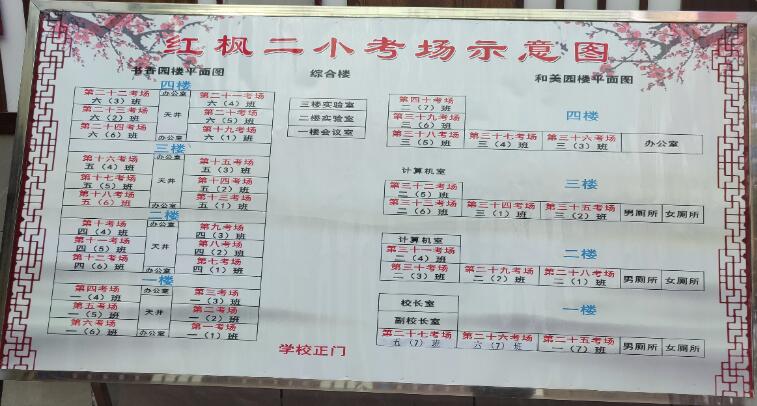 红枫二小考场示意图
书香园楼平面图
综合楼
和美园楼平面图
四楼
第二十二考场
六（3）班
办公室
第二十一考场
六（4）班
第二十三考场
六（2）班
天井
第二十考场
六（5）班
第二十四考场
六（6）班
办公室
第十九考场
六（1）班
三楼
第十六考场
五（4）班
办公室
第十五考场
五（3）班
第十七考场
五（5）班
天井
第十四考场
五（2）班
第十八考场
五（6）班
第十三考场
五（1）班
二楼
第十考场
四（4）班
第九考场
四（3）班
第十一考场
四（5）班
天井
第八考场
四（2）班
第十二考场
四（6）班
办公室
第七考场
四（1）班
一楼
第四考场
一（4）班
办公室
第三考场
一（3）班
第五考场
一（5）班
天井
第二考场
一（2）班
第六考场
一（6）班
办公室
第一考场
一（1）班
三楼实验室
二楼实验室
一楼会议室
第四十考场
二（7）班
四楼
第三十九考场
三（6）班
第三十八考场
三（5）班
第三十七考场
三（4）班
第三十六考场
三（3）班
办公室
计算机室
三楼
第三十二考场
二（5）班
第三十三考场
二（6）班
第三十四考场
三（1）班
第三十五考场
三（2）班
男厕所
女厕所
计算机室
二楼
第三十一考场
二（4）班
第三十考场
二（3）班
第二十九考场
二（2）班
第二十八考场
二（1）班
男厕所
女厕所
校长室
副校长室
一楼
第二十七考场
五（7）班
第二十六考场
六（7）班
第二十五考场
一（7）班
男厕所
女厕所
学校正门